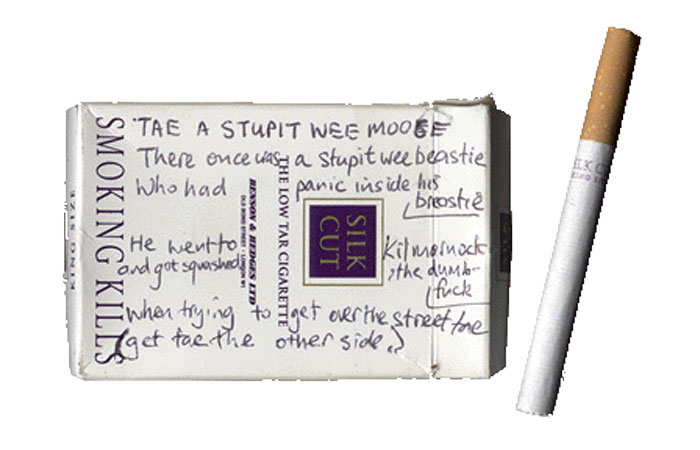 'TAE A STUPIT WEE MOOSE
There once was a stupit wee beastie
Who had panic inside his
breastie
He went to Kilmarnock
and got squashed, the dumb-
fuck
When trying to get over the street tae
(get tae the other side.)
SMOKING KILLS
KING SIZE
BENSON & HEDGES LTD
OLD BOND STREET · LONDON W1
THE LOW TAR CIGARETTE
SILK
CUT
SILK C